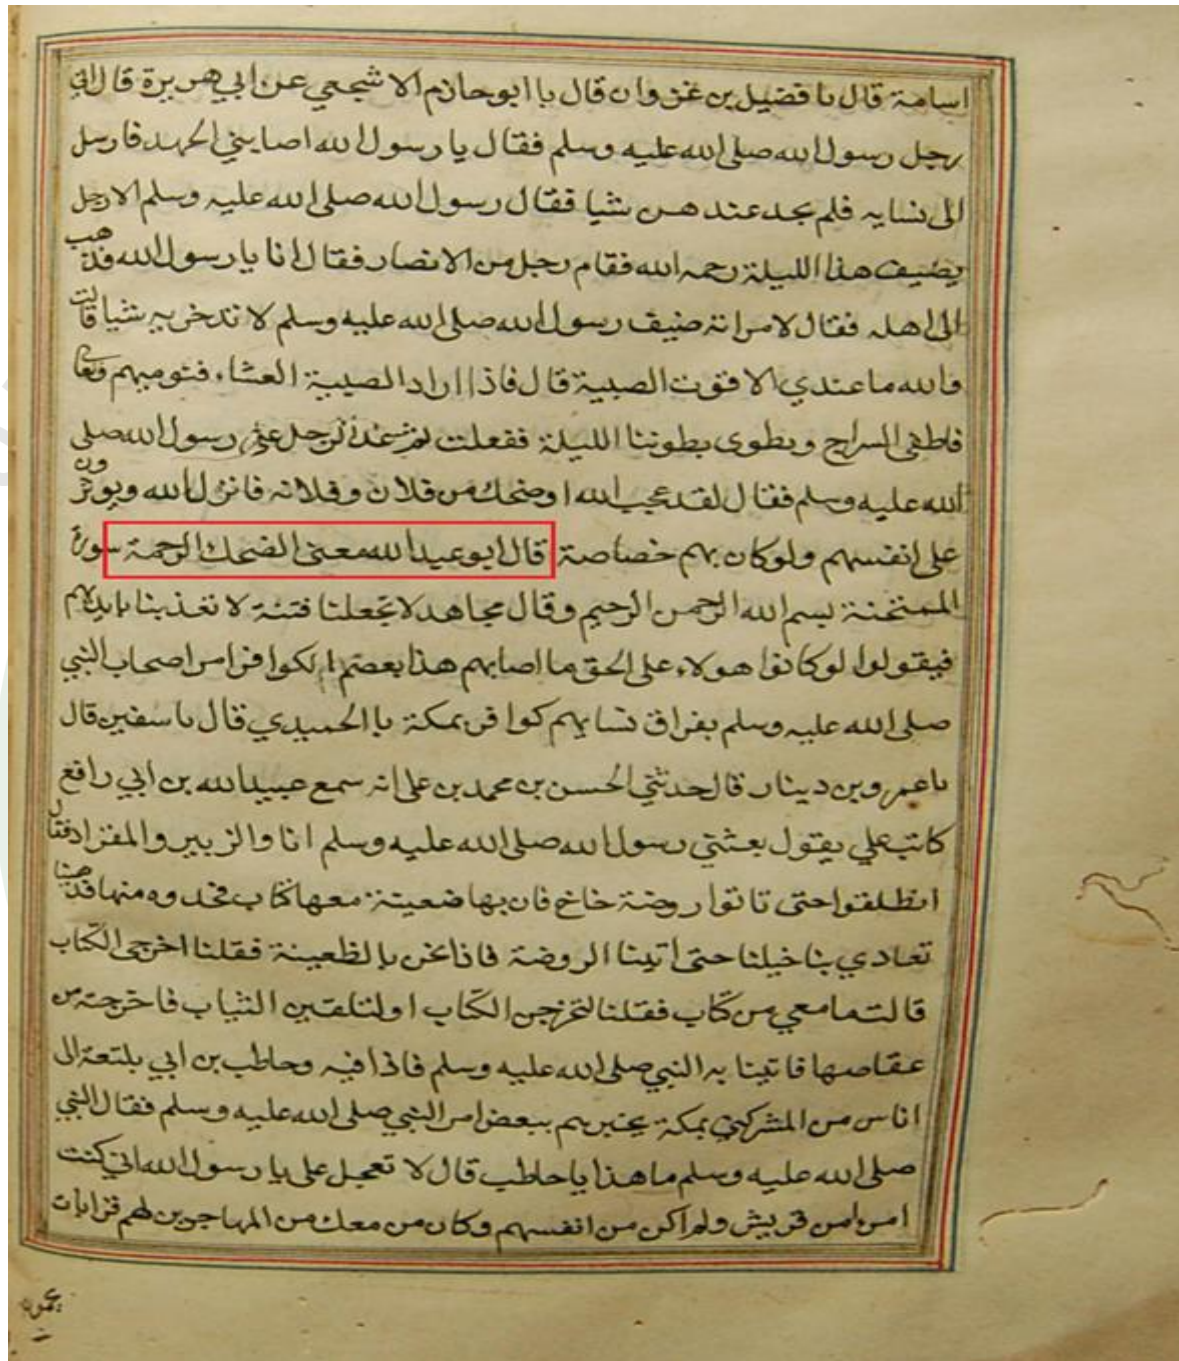 اسامة قال نا فضيل بن غزوان قال نا ابو حازم الاشجعي عن ابي هريرة قال اتي
رجل رسول الله صلى الله عليه وسلم فقال يا رسول الله اصابني الجهد فارسل
الى نسايه فلم يجد عندهن شيا فقال رسول الله صلى الله عليه وسلم الا رجل
يضيف هذا الليلة رحمه الله فقام رجل من الانصار فقال انا يا رسول الله فذهب
الى اهله فقال لامراته ضيف رسول الله صلى الله عليه وسلم لا تدخريه شيا قالت
فالله ما عندي الا قوت الصبية قال فاذا اراد الصبية العشاء فنوميهم وتعالي
فاطفى السراج ونطوى بطوننا الليلة ففعلت ثم غدا الرجل على رسول الله صلى
الله عليه وسلم فقال لقد عجب الله او ضحك من فلان وفلانه فانزل الله ويوثرون
على انفسهم ولو كان بهم خصاصة قال ابو عبد الله معنى الضحك الرحمة سورة
الممتحنة بسم الله الرحمن الرحيم وقال مجاهد لا تجعلنا فتنة لا تعذبنا بايديهم
فيقولوا لو كانوا هولاء على الحق ما اصابهم هذا بعصم الكوافر امر اصحاب النبي
صلى الله عليه وسلم بفراق نسايهم كوافر بمكة نا الحميدي قال نا سفين قال
نا عمرو بن دينار قال حدثني الحسن بن محمد بن على انه سمع عبيد الله بن ابي رافع
كاتب علي يقول بعثني رسول الله صلى الله عليه وسلم انا والزبير والمقداد فقال
انطلقوا حتى تاتوا روضة خاخ فان بها ضعينة معها كتاب فخذوه منها فذهبنا
تعادي بنا خيلنا حتى اتينا الروضة فاذا نحن بالظعينة فقلنا اخرجى الكتاب
قالت ما معي من كتاب فقلنا لتخرجن الكتاب او لتلقين الثياب فاخرجته من
عقاصها فاتينا به النبي صلى الله عليه وسلم فاذا فيه وحاطب بن ابي بلتعة الى
اناس من المشركين بمكة يخبرهم ببعض امر النبي صلى الله عليه وسلم فقال النبي
صلى الله عليه وسلم ما هذا يا حاطب قال لا تعجل على يا رسول الله اني كنت
امرا من قريش ولم اكن من انفسهم وكان من معك من المهاجرين لهم قرابات